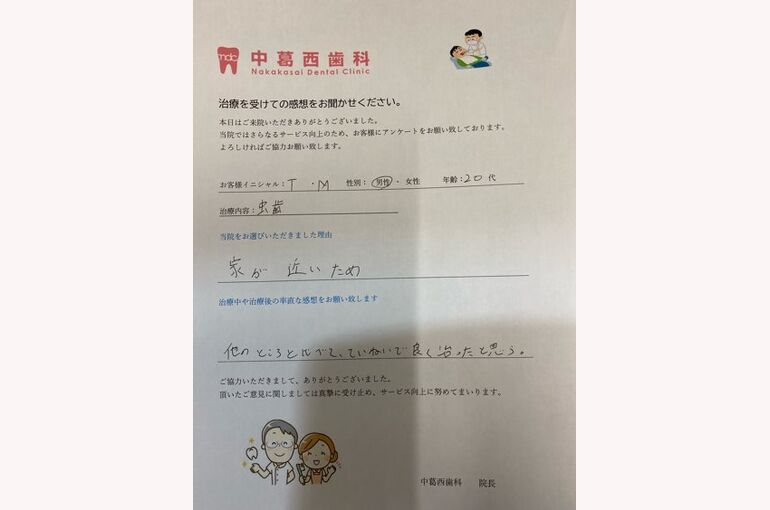 mdc 中葛西歯科
Nakakasai Dental Clinic
治療を受けての感想をお聞かせください。
本日はご来院いただきありがとうございました。
当院ではさらなるサービス向上のため、お客様にアンケートをお願い致しております。
よろしければご協力お願い致します。
お客様イニシャル：T ・M 性別：男性・女性 年齢：20代
治療内容：虫歯
当院をお選びいただきました理由
家が近いため
治療中や治療後の率直な感想をお願い致します
他のところと比べて、ていねいで良く治ったと思う。
ご協力いただきまして、ありがとうございました。
頂いたご意見に関しましては真摯に受け止め、サービス向上に努めてまいります。
中葛西歯科 院長